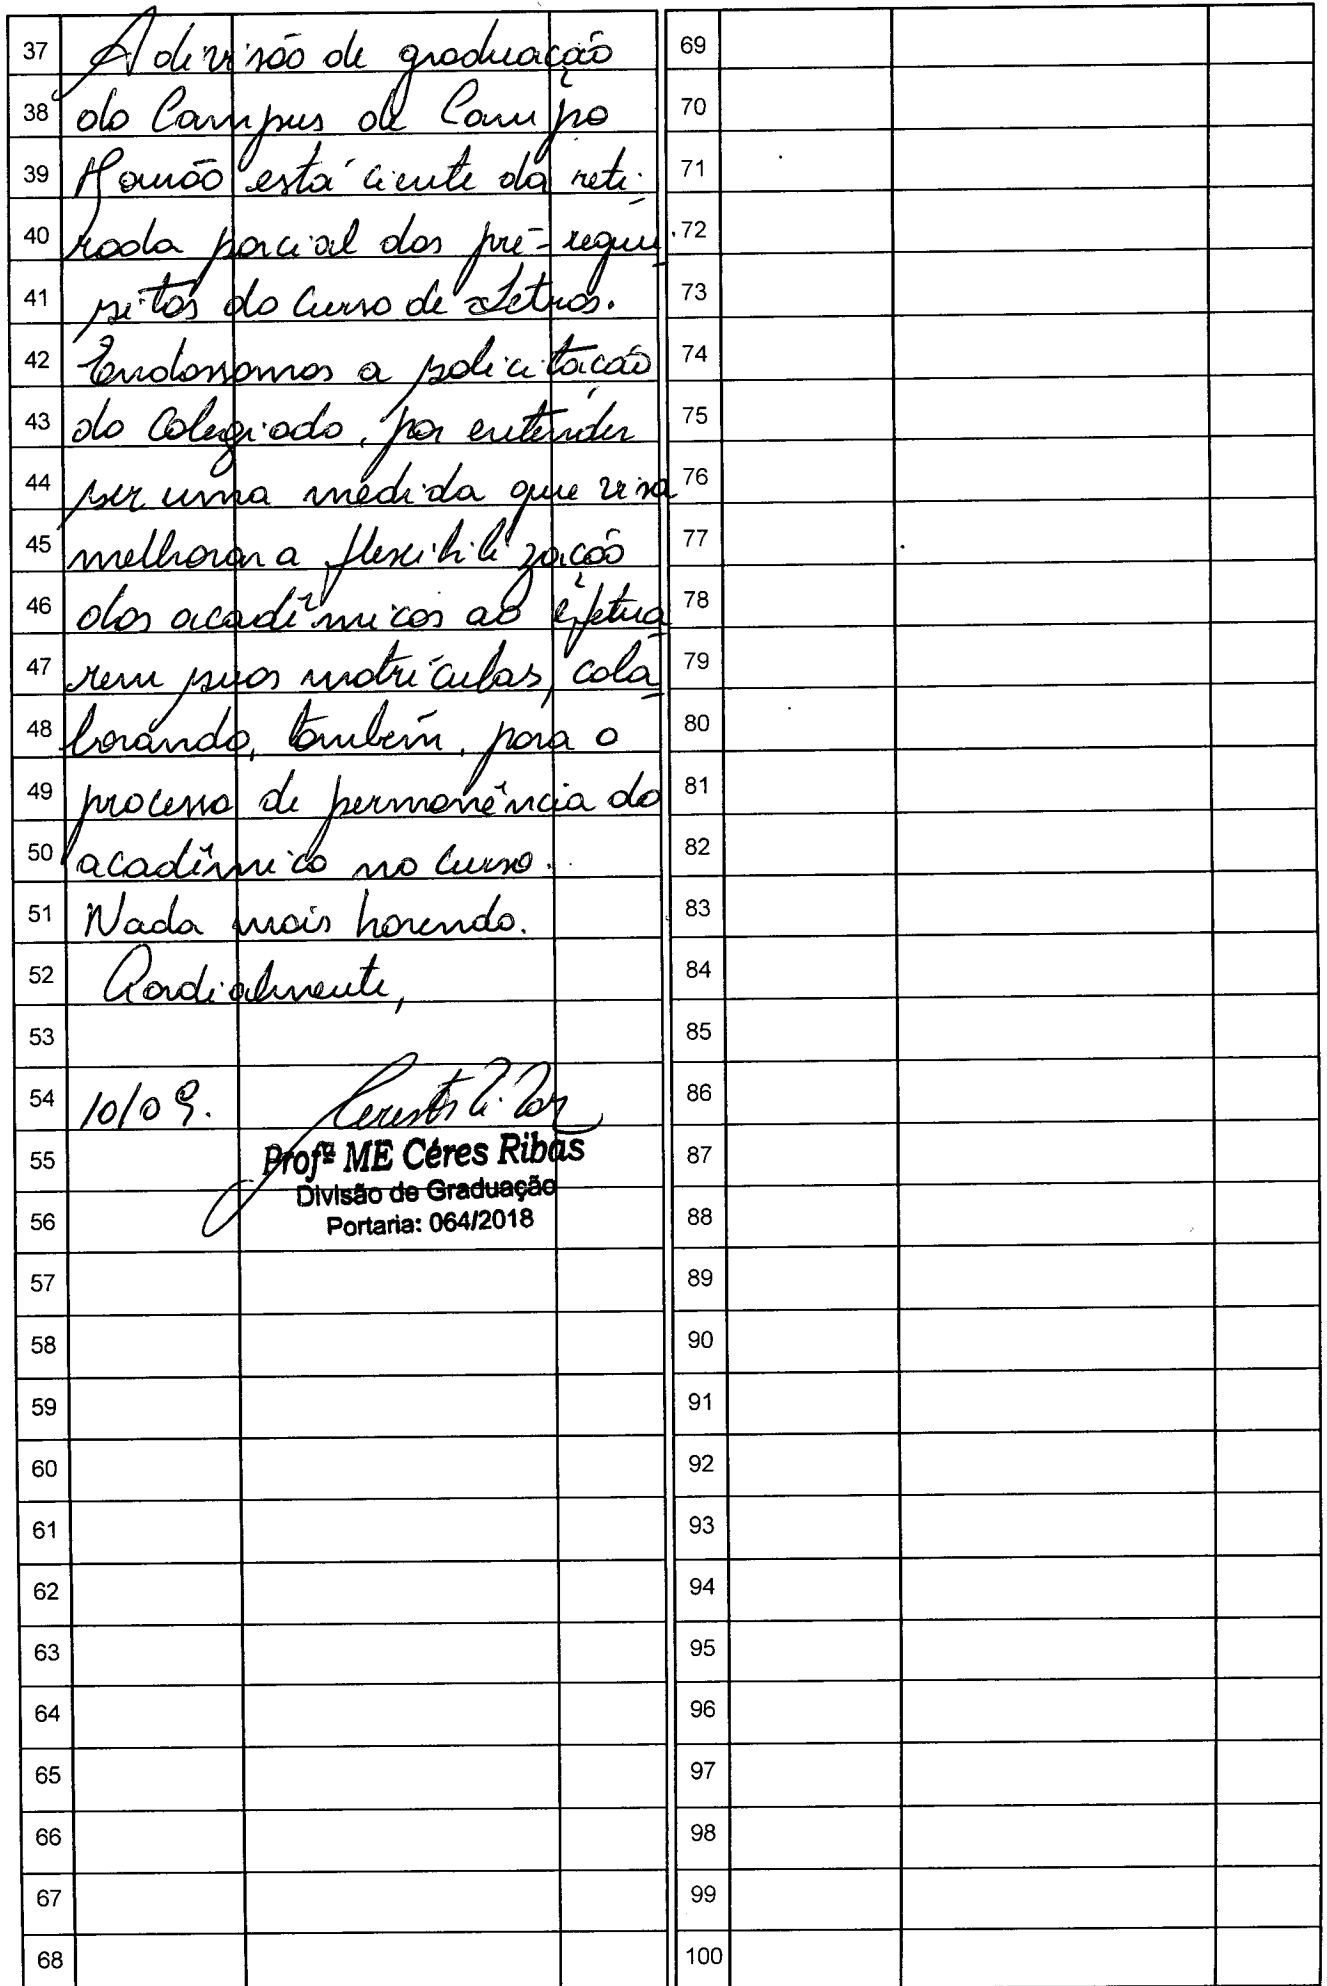 37 A divisão de graduação
38 do Campus de Campo
39 Mourão está ciente da reti-
40 rada parcial dos pré-requi-
41 sitos do Curso de Letras.
42 Endossamos a solicitação
43 do Colegiado, por entender
44 ser uma medida que visa
45 melhorar a flexibilização
46 dos acadêmicos ao efetua
47 rem suas matrículas, cola
48 borando, também, para o
49 processo de permanência do
50 acadêmico no curso.
51 Nada mais havendo.
52 Cordialmente,
53
54 10/09.
55 Profª ME Céres Ribas
Divisão de Graduação
56 Portaria: 064/2018
57
58
59
60
61
62
63
64
65
66
67
68
69
70
71
72
73
74
75
76
77
78
79
80
81
82
83
84
85
86
87
88
89
90
91
92
93
94
95
96
97
98
99
100